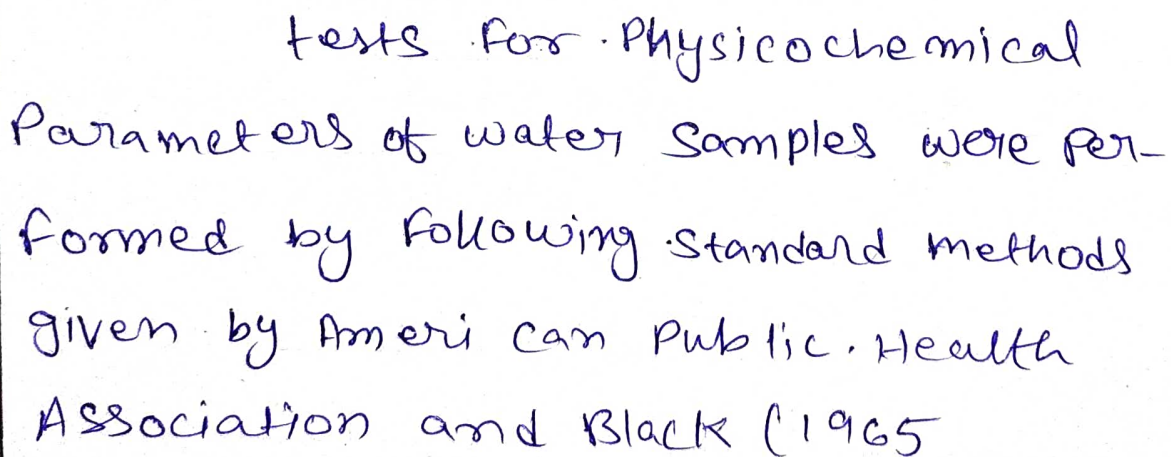 tests for Physicochemical
Parameters of water Samples were Per-
formed by Following Standard methods
given by American Public Health
Association and Black (1965